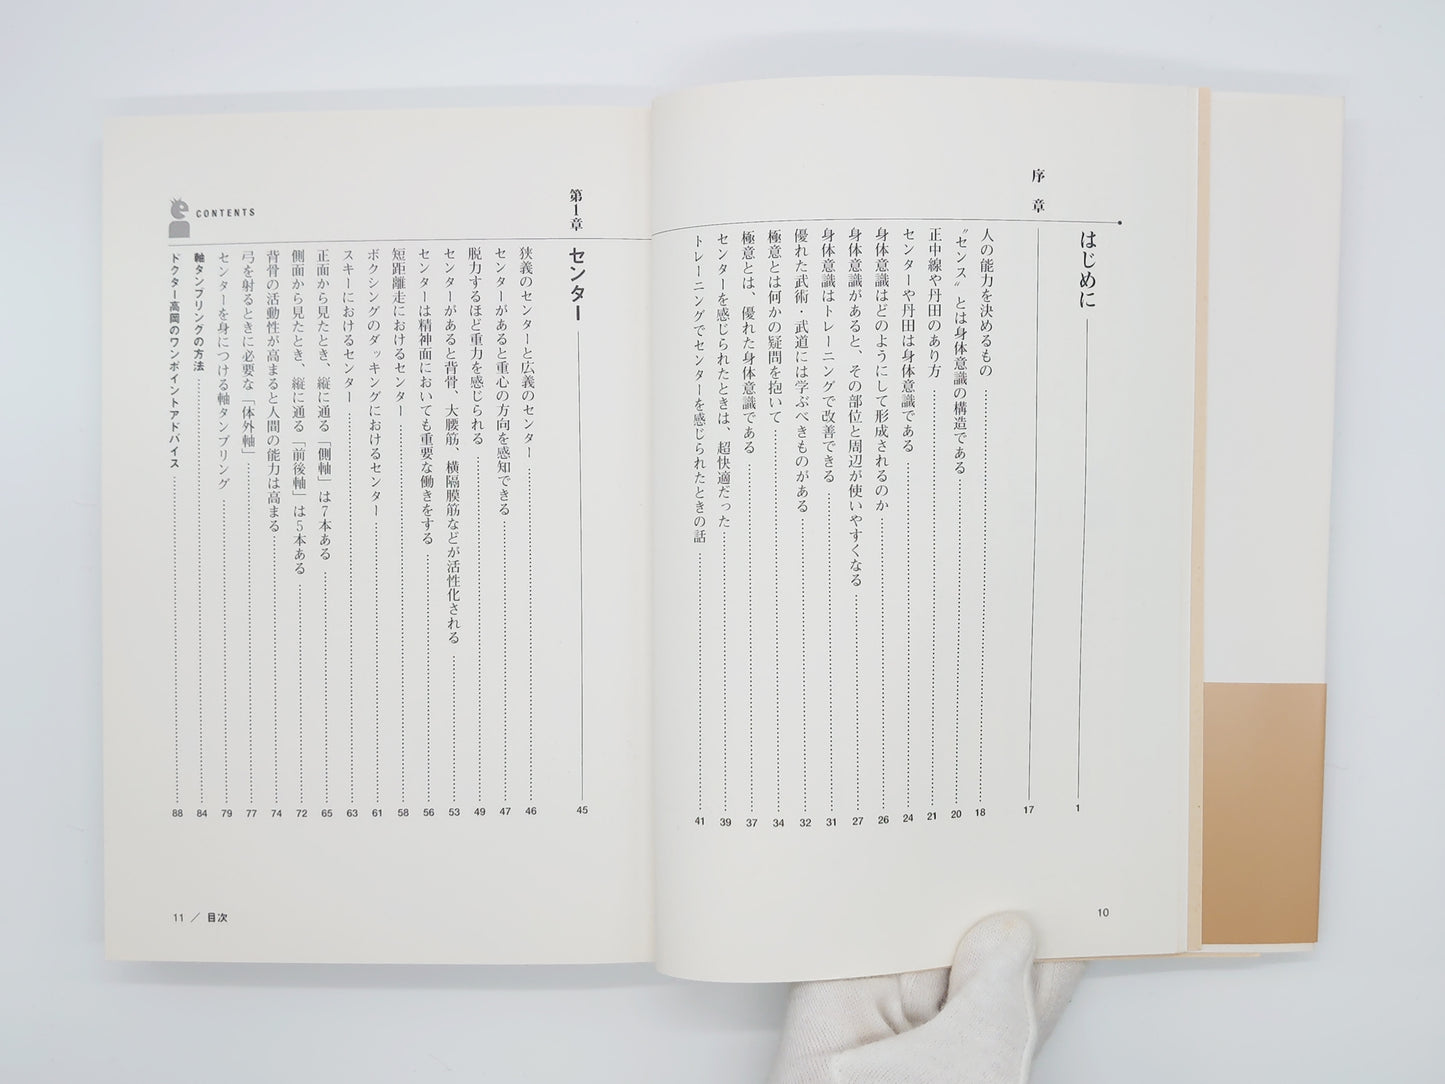 はじめに 1
序章 17
人の能力を決めるもの 18
〝センス〟とは身体意識の構造である 20
正中線や丹田のあり方 21
センターや丹田は身体意識である 24
身体意識はどのようにして形成されるのか 26
身体意識があると、その部位と周辺が使いやすくなる 27
身体意識はトレーニングで改善できる 31
優れた武術・武道には学ぶべきものがある 32
極意とは何かの疑問を抱いて 34
極意とは、優れた身体意識である 37
センターを感じられたときは、超快適だった 39
トレーニングでセンターを感じられたときの話 41
10
CONTENTS
第1章 センター 45
狭義のセンターと広義のセンター 46
センターがあると重心の方向を感知できる 47
脱力するほど重力を感じられる 49
センターがあると背骨、大腰筋、横隔膜筋などが活性化される 53
センターは精神面においても重要な働きをする 56
短距離走におけるセンター 58
ボクシングのダッキングにおけるセンター 61
スキーにおけるセンター 63
正面から見たとき、縦に通る「側軸」は7本ある 65
側面から見たとき、縦に通る「前後軸」は5本ある 72
背骨の活動性が高まると人間の能力は高まる 74
弓を射るときに必要な「体外軸」 77
センターを身につける軸タンブリング 79
軸タンブリングの方法 84
ドクター高岡のワンポイントアドバイス 88
11 ／ 目次